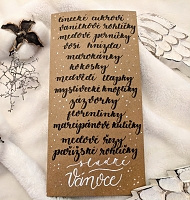 linecké cukroví
vanilkové rohlíčky
medové perníčky
vosí hnízda
marokánky
kokosky
medvědí tlapky
myslivecké knoflíky
zázvorky
florentinky
marcipánové kuličky
medové řezy
pařížské rohlíčky
sladké
Vánoce!